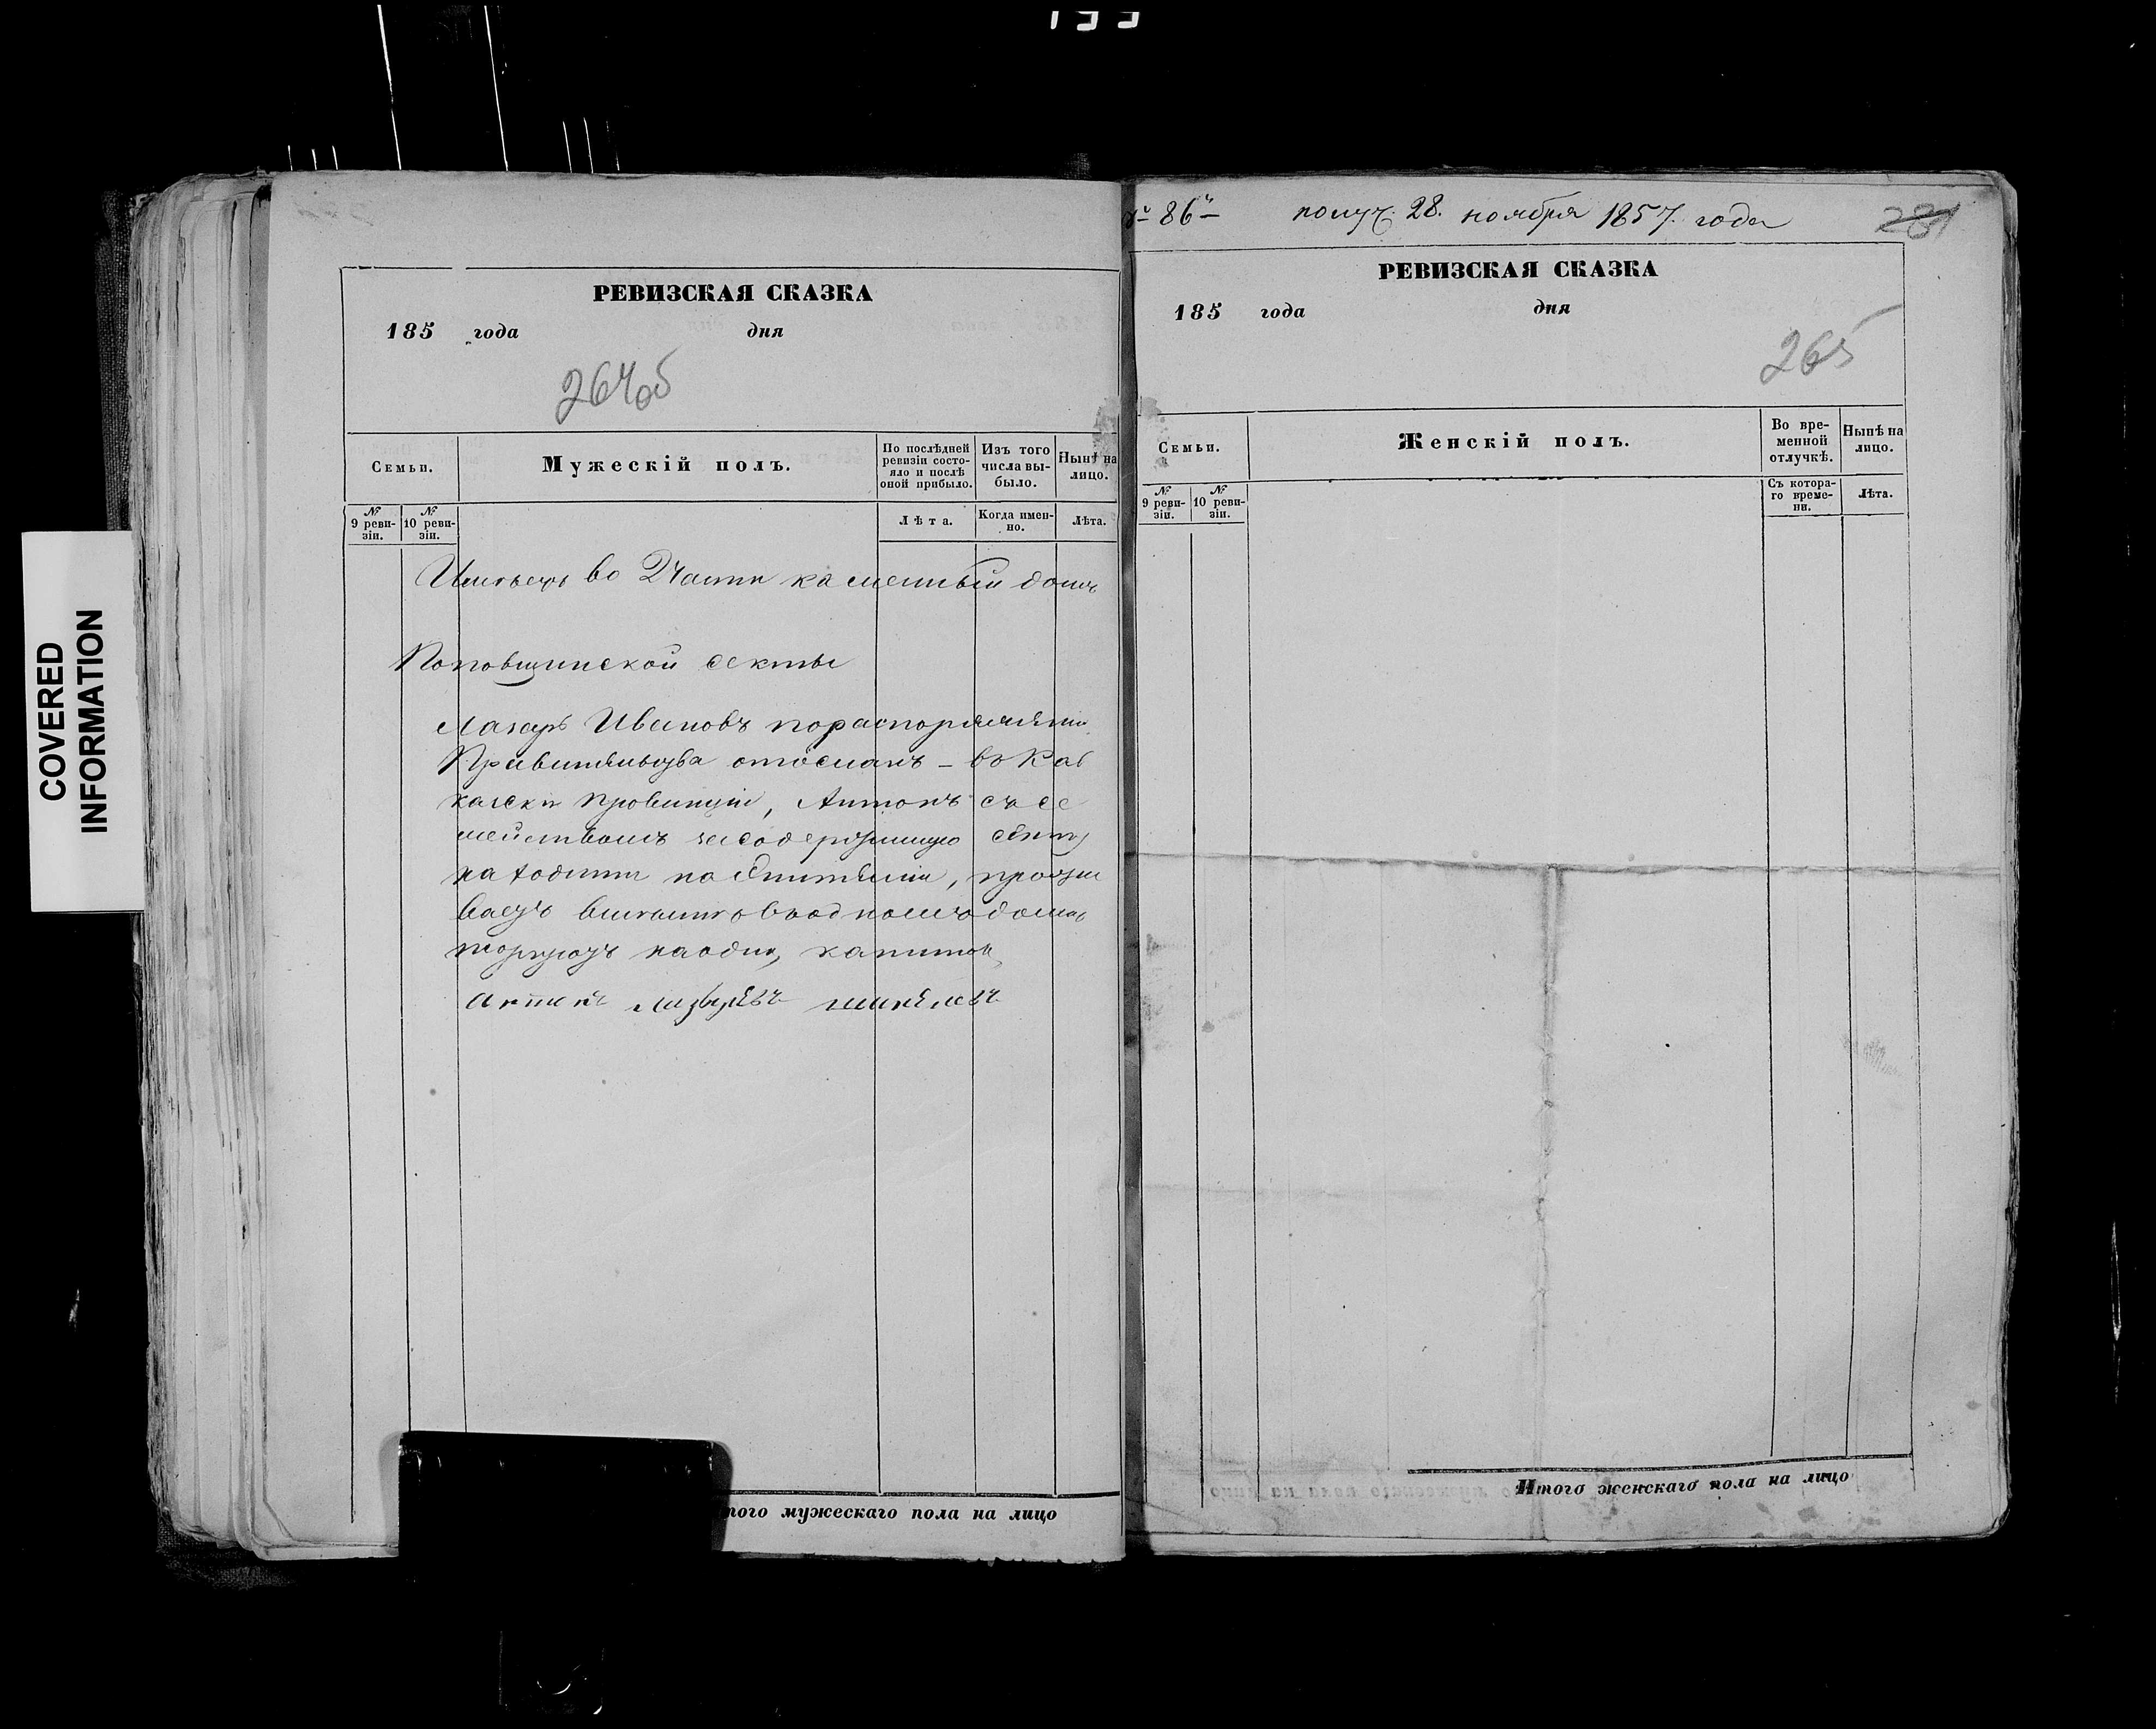 COVERED
INFORMATION
РЕВИЗСКАЯ СКАЗКА
185 года дня
264об
Семьи.
Мужескій полъ.
По послѣдней
ревизіи состо-
яло и послѣ
оной прибыло.
Изъ того
числа вы-
было.
Нынѣ на
лицо.
№
9 реви-
зіи.
№
10 реви-
зіи.
Лѣта.
Когда имен-
но.
Лѣта.
Имѣетъ во 2 части каменный домъ
Поповщинской секты
Лазарь Ивановъ по распоряженію
Правительства отосланъ - во Кав
казски провинціи, Антонъ съ се
мейством за содержимую секту
находитт на
вместѣ въ одномъ домѣ
торгуютъ на одинъ капитал
Антонъ Лазаревъ
№ 86й получ. 28. ноября 1857. года
231
РЕВИЗСКАЯ СКАЗКА
185 года дня
265
Семьи.
Женскій полъ.
Во вре-
менной
отлучкѣ.
Нынѣ на
лицо.
№
9 реви-
зіи.
№
10 реви-
зіи.
Съ котора-
го време-
ни.
Лѣта.
того мужескаго пола на лицо
Итого женскаго пола на лицо